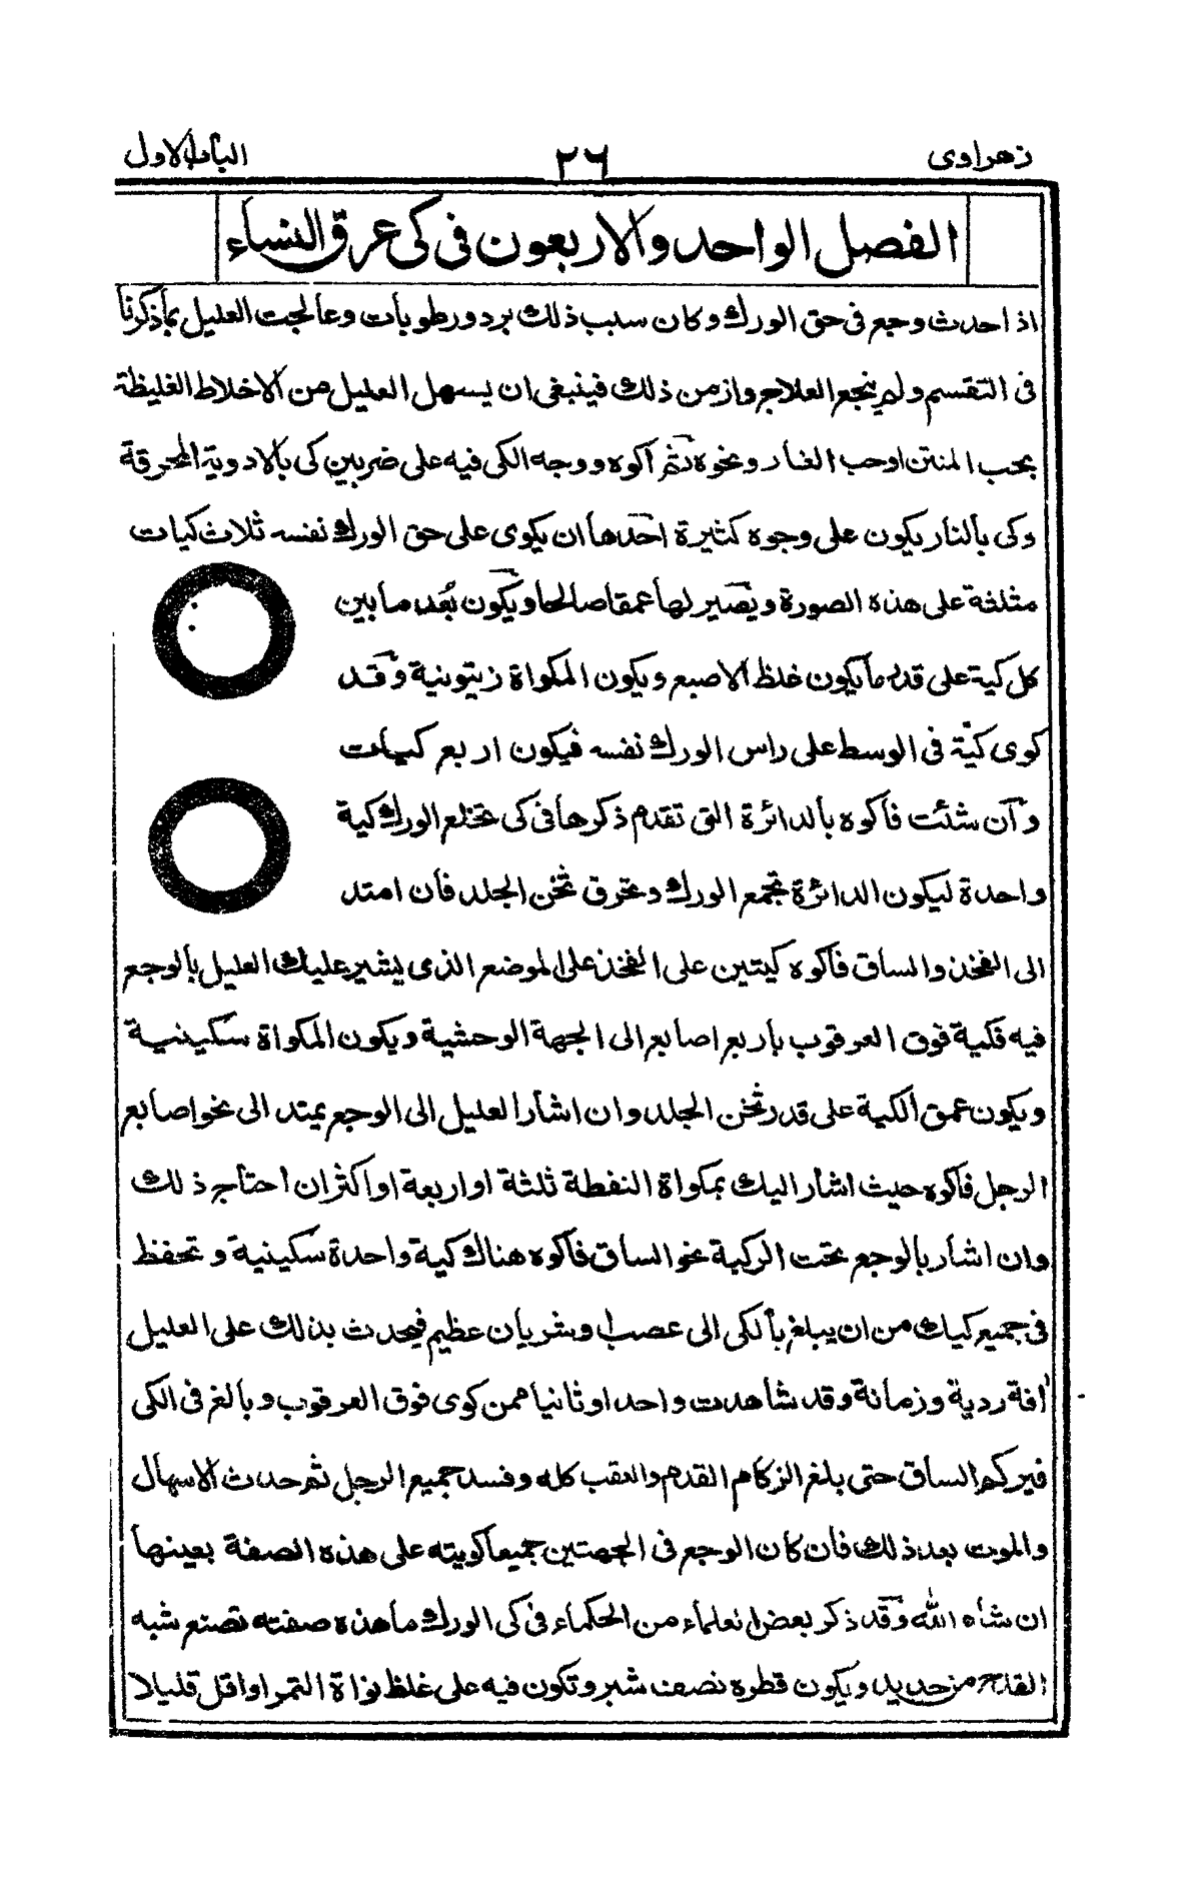 زهراوى ٢٦ الباب الاول
الفصل الواحد والاربعون فى كى عرق النساء
اذا حدث وجع فى حق الورك وكان سبب ذلك برد ورطوبات وعالجت العليل بماذكرنا
فى التقسيم ولم ينجع العلاج وازمن ذلك فينبغى ان يسهل العليل من الاخلاط الغليظة
بحب المنتن اوحب الفار ونحوه ثم اكوه ووجه الكى فيه على ضربين كى بالادوية المحرقة
وكى بالنار يكون على وجوه كثيرة احدها ان يكوى على حق الورك نفسه ثلاث كيات
مثلثة على هذه الصورة ويصير لها عمقا صالحا ويكون بُعد ما بين
كل كية على قدر ما يكون غلظ الاصبع ويكون المكواة زيتونية وقد
كوى كيّة فى الوسط على راس الورك نفسه فيكون اربع كيات
وآن شئت فاكوه بالدائرة التى تقدم ذكرها فى كى تخلع الورك كية
واحدة ليكون الدائرة تجمع الورك وتحرق ثخن الجلد فان امتد
الى الفخذ والساق فاكوه كيتين على الفخذ على الموضع الذى يشير عليك العليل بالوجع
فيه فكية فوق العرقوب باربع اصابع الى الجهة الوحشية ويكون المكواة سكينية
ويكون عمق الكية على قدر ثخن الجلد وان اشار العليل الى الوجع يمتد الى نحو اصابع
الرجل فاكوه حيث اشار اليك بمكواة النقطة ثلثة او اربعة او اكثر ان احتاج ذلك
وان اشار بالوجع تحت الركبة نحو الساق فاكوه هناك كية واحدة سكينية وتحفظ
فى جميع كياك من ان يبلغ بالكى الى عصب او شريان عظيم فيحدث بذلك على العليل
افة ردية وزمانة وقد شاهدت واحد او ثانيا ممن كوى فوق العرقوب وبالغ فى الكى
فيركم الساق حتى بلغ الزكام القدم والعقب كله وفسد جميع الرجل ثم حدث الاسهال
والموت بعد ذلك فان كان الوجع فى الجهتين جميعا كويته على هذه الصفة بعينها
ان شاء الله وقد ذكر بعض العلماء من الحكماء فى كى الورك ما هذه صفته تصنع شبه
القدح من حديد ويكون قطره نصف شبر وتكون فيه على غلظ نواة التمر او اقل قليلا